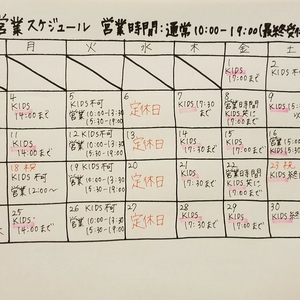 営業スケジュール 営業時間:通常10:00-19:00(最終受
月 火 水 木 金 土
1
KIDS
17:00まで
2
4
KIDS
14:00まで
5
KIDS不可
営業10:00-13:30
15:30-19:00
6
定休日
7
KIDS 17:30
まで
8
営業時間
KIDS共に
17:00まで
9
KIDS
15:30
11
KIDS
14:00まで
12 KIDS不可
営業10:00-13:30
15:30-19:00
13
定休日
14
KIDS
17:30まで
15
KIDS
17:00まで
16
KIDS
15:30
18 祝
KIDS不可
営業12:00〜
19 KIDS不可
営業10:00-13:30
15:30-19:00
20
定休日
21
KIDS
17:30まで
22
営業時間
KIDS共に
17:00まで
23 祝
KIDS
25
KIDS
14:00まで
26 KIDS不可
営業10:00-13:30
15:30-19:00
27
定休日
28
KIDS
17:30まで
29
KIDS
17:00まで
30
KIDS